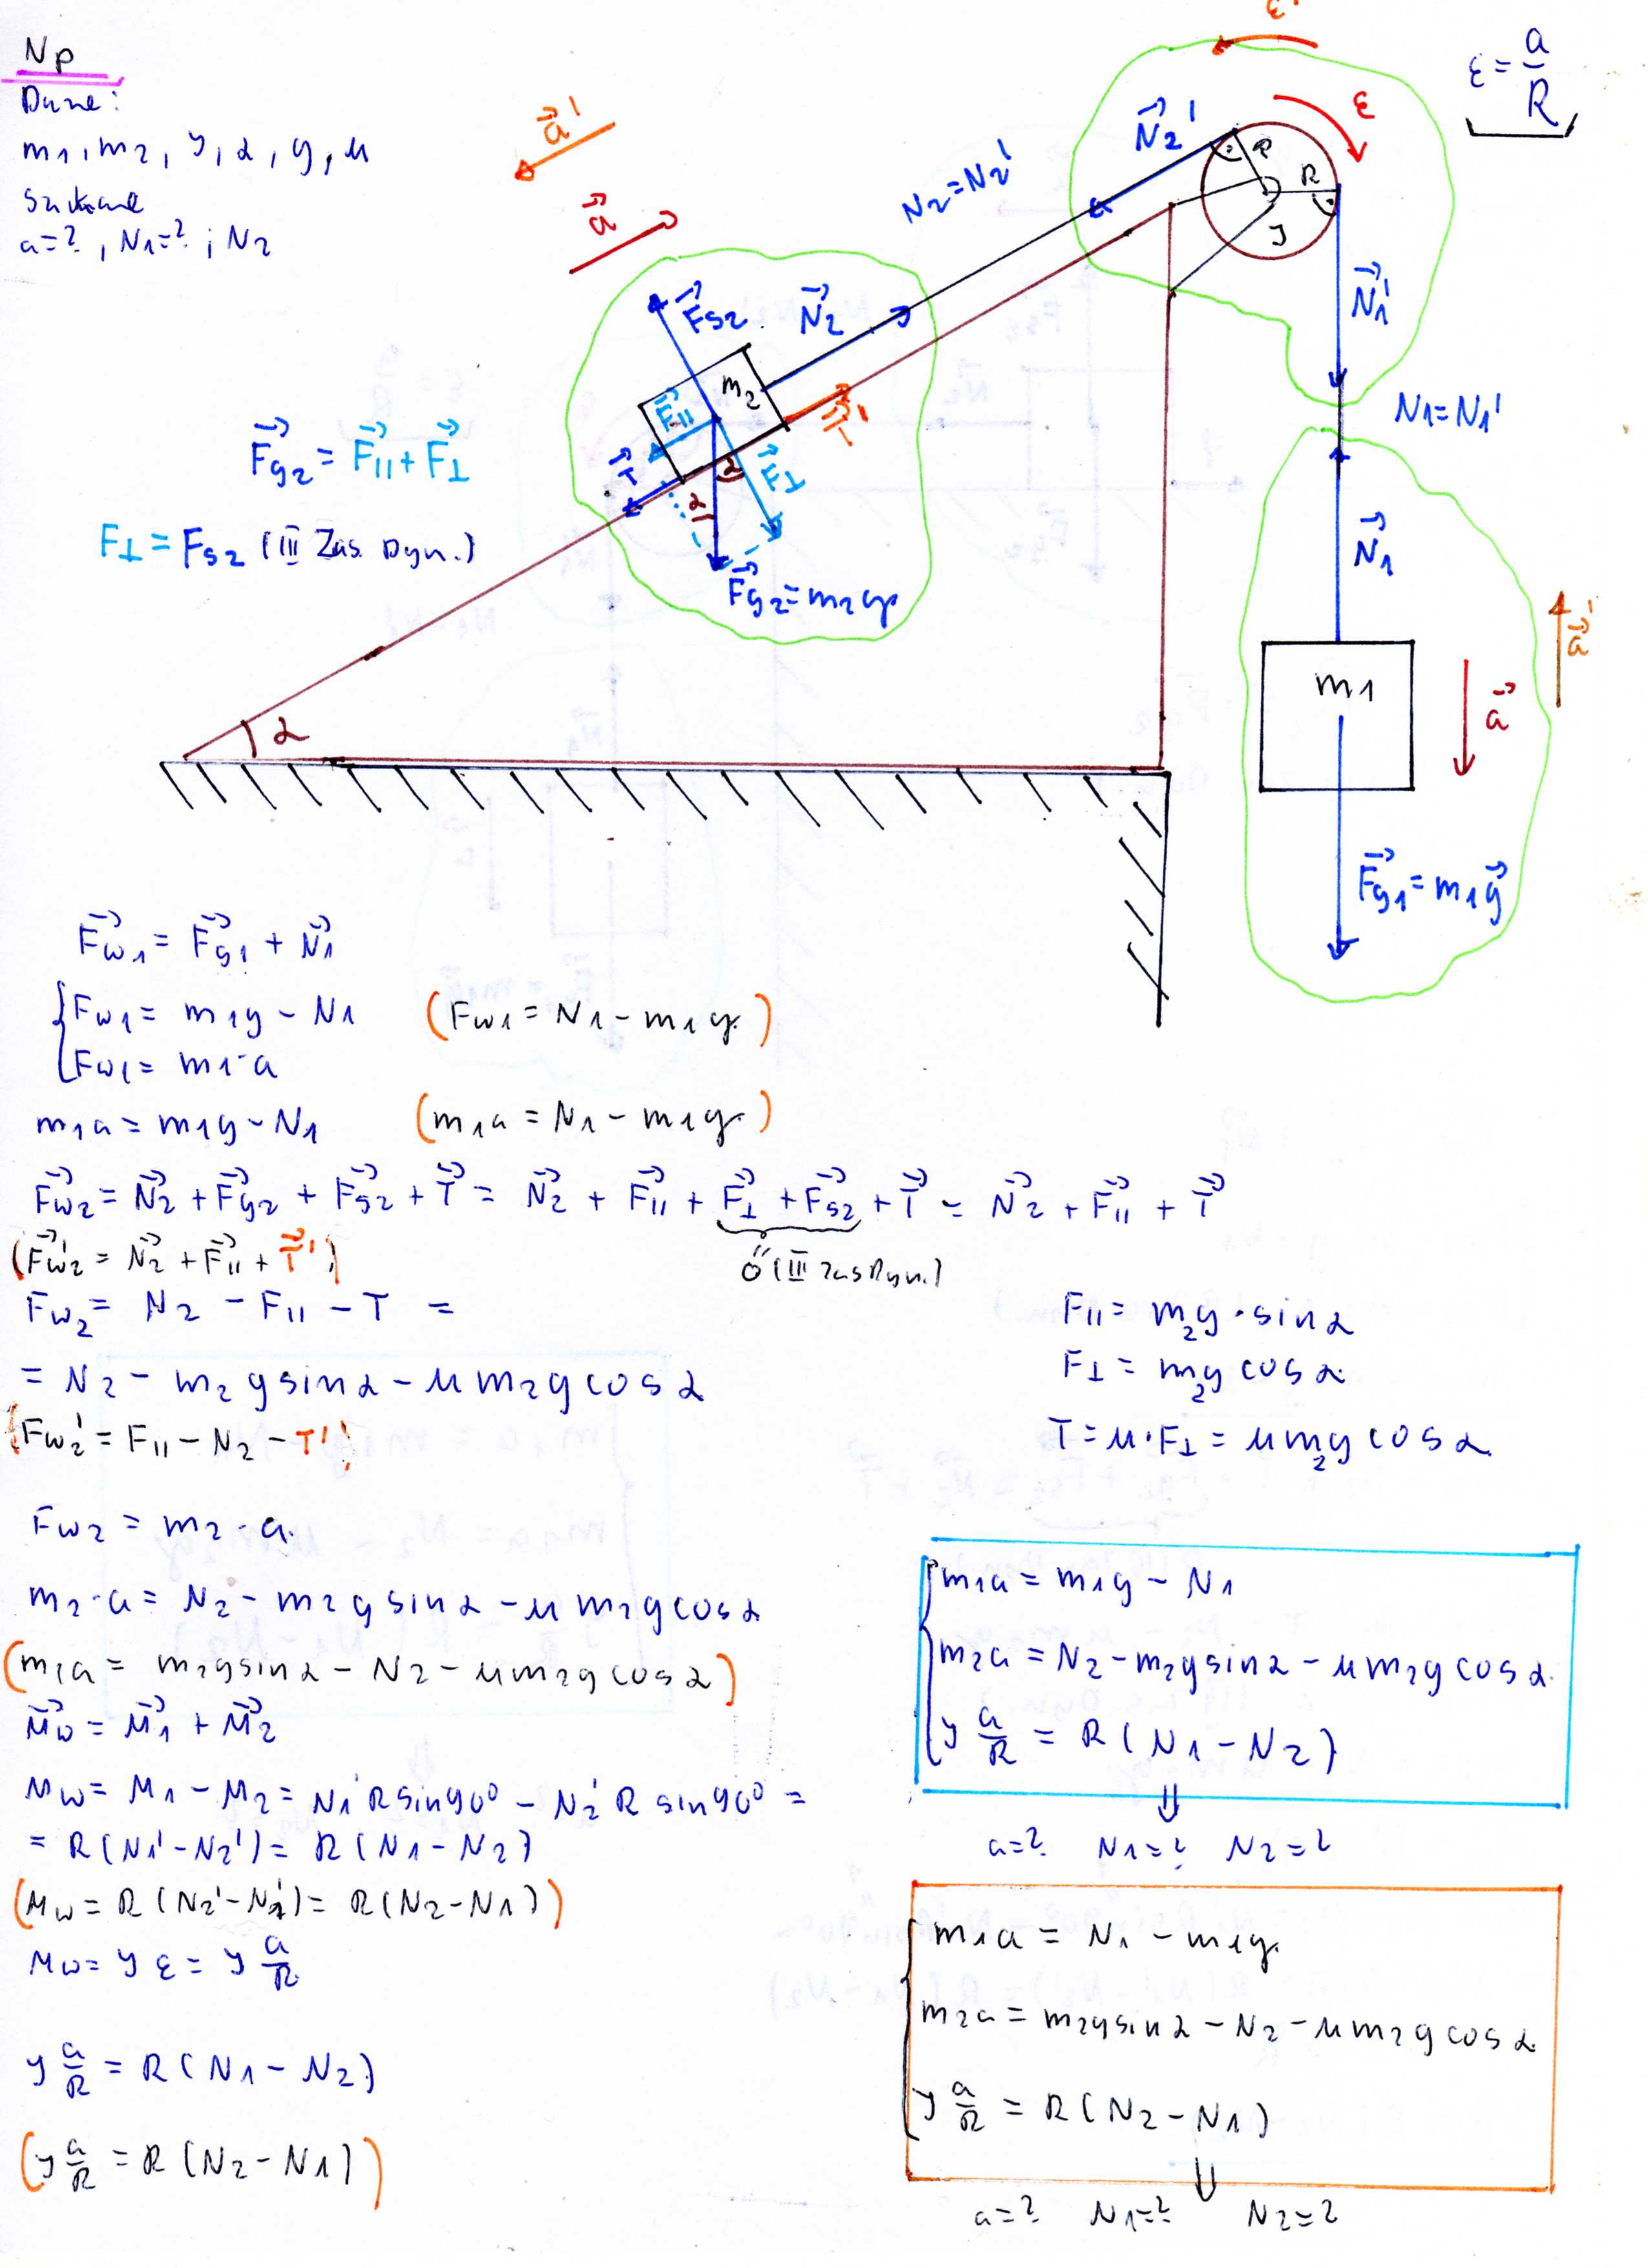 Np
Dane:
m1, m2, J, α, g, μ
Szukane
a=?, N1=?; N2
ε'
ε = a/R
ε
a⃗'
a⃗
N2 = N2'
N⃗2'
R
R
J
N⃗1'
N1 = N1'
N⃗1
F⃗s2
N⃗2
m2
F⃗||
T⃗
T⃗'
F⃗⊥
α
α
F⃗g2 = m2g
F⃗g2 = F⃗|| + F⃗⊥
F⊥ = Fs2 (III Zas. Dyn.)
m1
a⃗'
a⃗
F⃗g1 = m1g⃗
α
F⃗w1 = F⃗g1 + N⃗1
Fw1 = m1g - N1 (Fw1 = N1 - m1g)
Fw1 = m1·a
m1a = m1g - N1 (m1a = N1 - m1g)
F⃗w2 = N⃗2 + F⃗g2 + F⃗s2 + T⃗ = N⃗2 + F⃗|| + F⃗⊥ + F⃗s2 + T⃗ = N⃗2 + F⃗|| + T⃗
0 (III Zas Dyn.)
(F⃗w2' = N⃗2 + F⃗|| + T⃗')
Fw2 = N2 - F|| - T =
= N2 - m2gsinα - μm2gcosα
(Fw2' = F|| - N2 - T')
F|| = m2g·sinα
F⊥ = m2gcosα
T = μ·F⊥ = μm2gcosα
Fw2 = m2·a
m2·a = N2 - m2gsinα - μm2gcosα
(m2a = m2gsinα - N2 - μm2gcosα)
M⃗w = M⃗1 + M⃗2
Mw = M1 - M2 = N1'Rsin90° - N2'Rsin90° =
= R(N1' - N2') = R(N1 - N2)
(Mw = R(N2' - N1') = R(N2 - N1))
Mw = Jε = J a/R
J a/R = R(N1 - N2)
(J a/R = R(N2 - N1))
m1a = m1g - N1
m2a = N2 - m2gsinα - μm2gcosα
J a/R = R(N1 - N2)
⇓
a=? N1=? N2=?
m1a = N1 - m1g
m2a = m2gsinα - N2 - μm2gcosα
J a/R = R(N2 - N1)
⇓
a=? N1=? N2=?